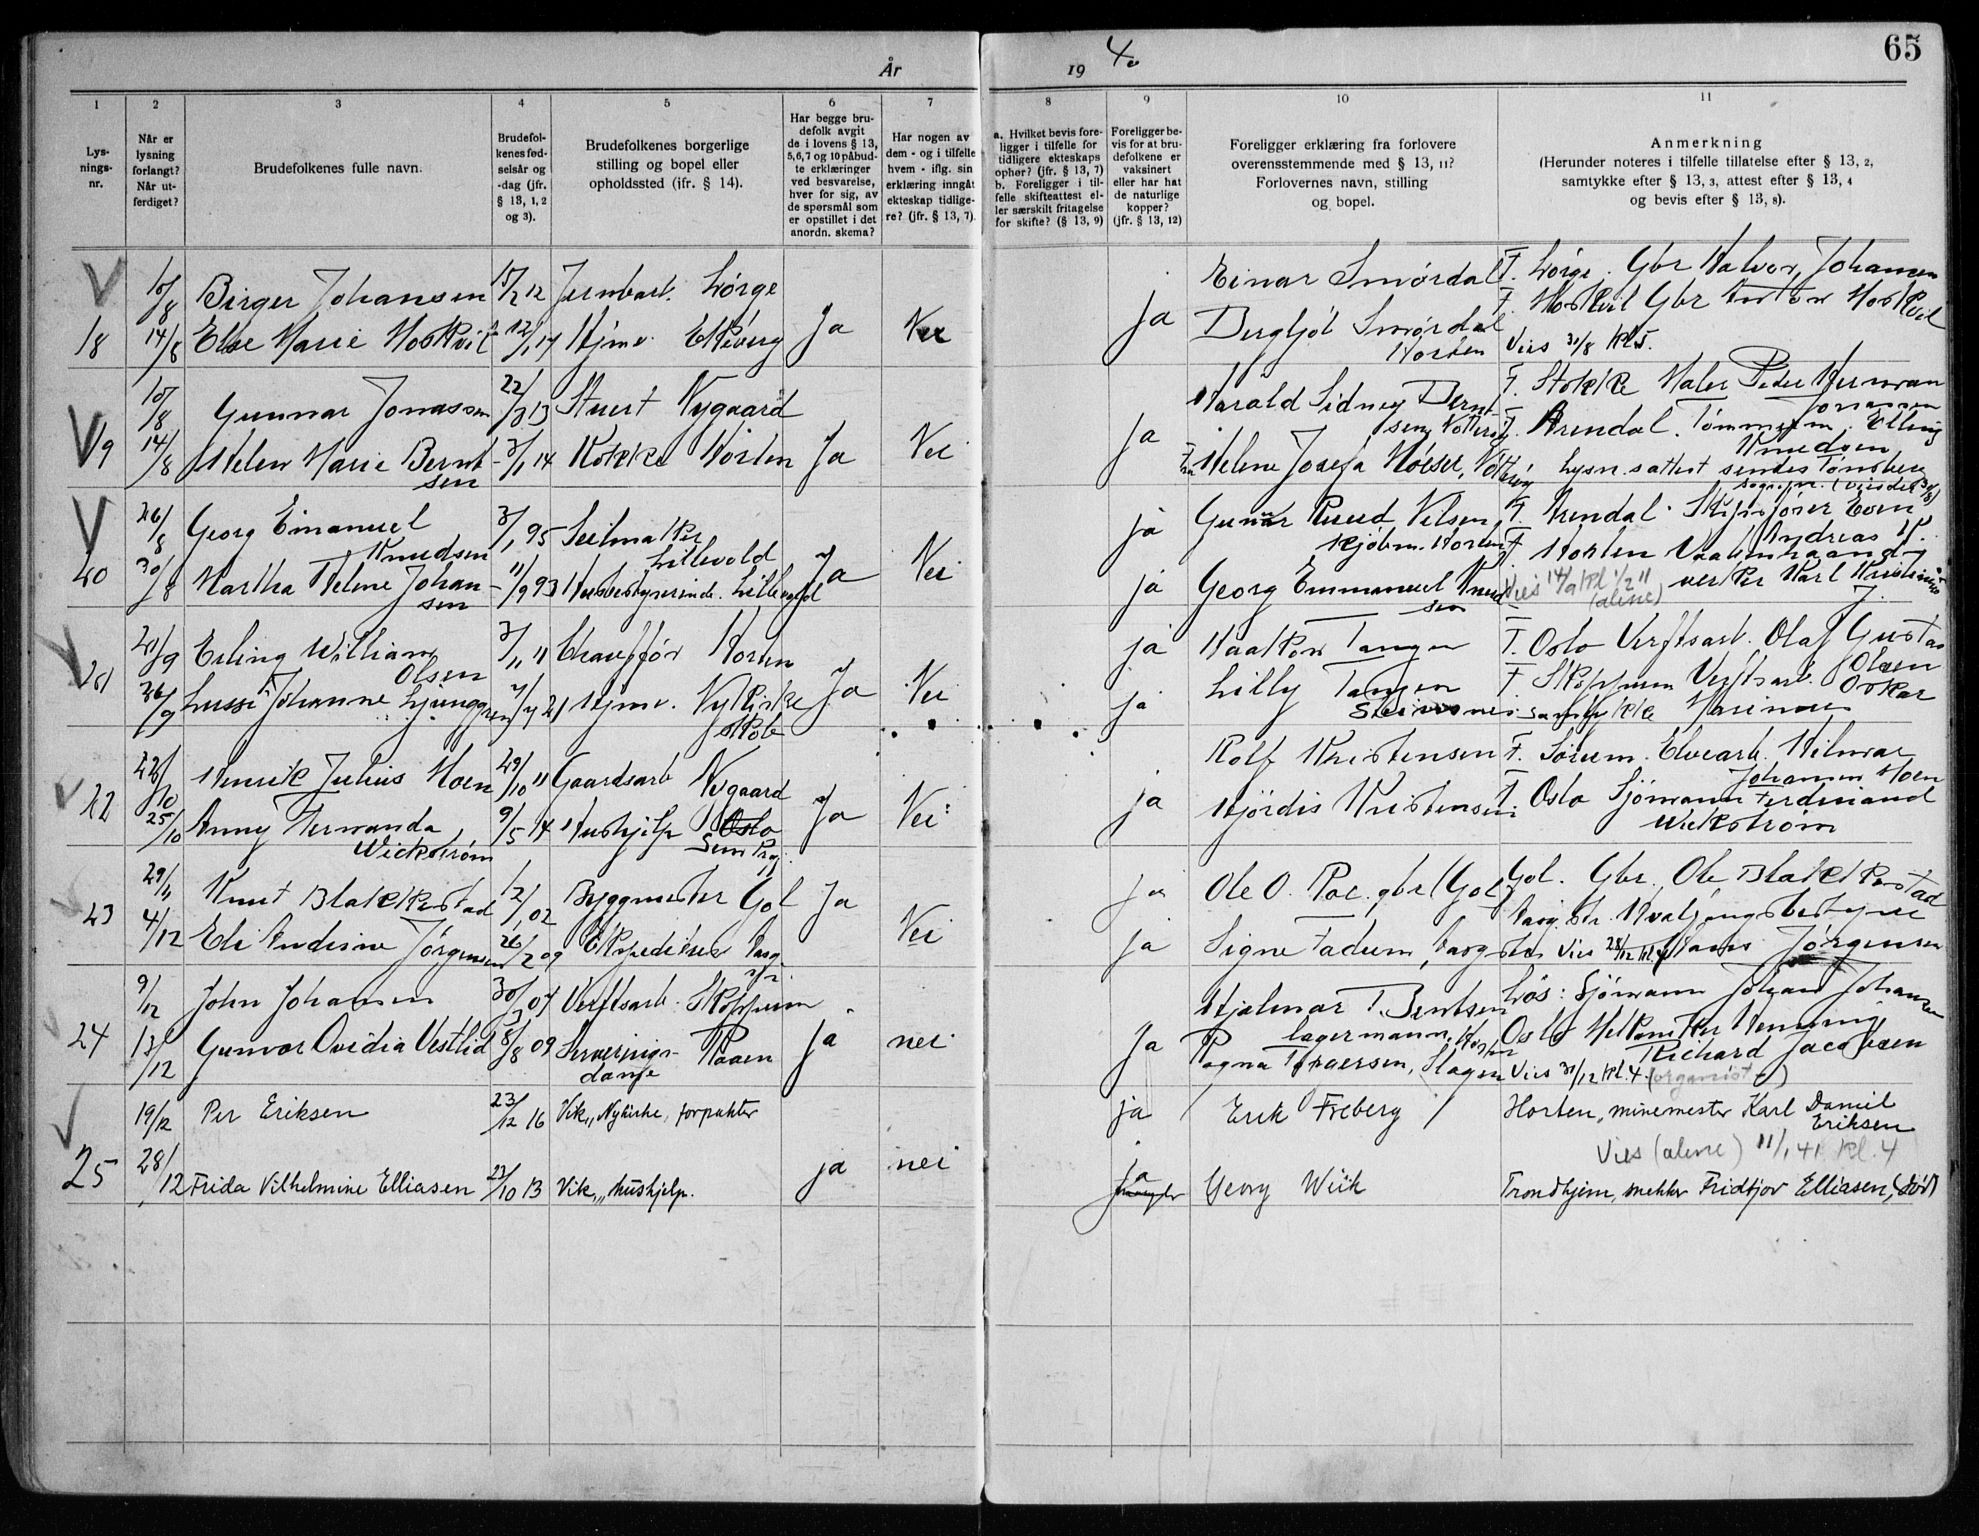 År 19 40
65
1 2 3 4 5 6 7 8 9 10 11
Lys-
nings-
nr.
Når er
lysning
forlangt?
Når ut-
ferdiget?
Brudefolkenes fulle navn.
Brudefol-
kenes fød-
selsår og
-dag (jfr.
§ 13, 1, 2
og 3).
Brudefolkenes borgerlige
stilling og bopel eller
opholdssted (jfr. § 14).
Har begge bru-
defolk avgit
de i lovens § 13,
5,6,7 og 10 påbud-
te erklæringer
ved besvarelse,
hver for sig, av
de spørsmål som
er opstillet i det
anordn. skema?
Har nogen av
dem - og i tilfelle
hvem - iflg. sin
erklæring inngått
ekteskap tidlige-
re? (jfr. § 13, 7)
a. Hvilket bevis fore-
ligger i tilfelle for
tidligere ekteskaps
ophør? (jfr. § 13, 7)
b. Foreligger i til-
felle skifteattest el-
ler særskilt fritagelse
for skifte? (§ 13, 9)
Foreligger be-
vis for at bru-
defolkene er
vaksinert
eller har hat
de naturlige
kopper?
(jfr. § 13, 12)
Foreligger erklæring fra forlovere
overensstemmende med § 13, 11?
Forlovernes navn, stilling
og bopel.
Anmerkning
(Herunder noteres i tilfelle tillatelse efter § 13, 2,
samtykke efter § 13, 3, attest efter § 13, 4
og bevis efter § 13, 8).
V 10/8 Birger Johansen 12 Jernbarb. Lørge Einar Smørdal F. Lørge. Gbr Halvor Johansen
18 14/8 Else Marie Moskvil 12/1 17 Hjmv. Ekeverg Ja Nei ja Bergljót Smørdal F. Moskvil Gbr Anton Moskvil
Horten Vies 31/8 Kl 5.
V 10/8 Gunnar Jonassen 22/3 13 Stuert Nygaard Harald Sidney Bernt- F. Stokke Maler Peder Herman
sen Jonassen
19 14/8 Helen Marie Bernt- 3/1 14 Kokke Horten Ja Nei ja Helene Josefa F. Arendal. Tømmerm. Elling
sen Knudsen
Lysn.sattest sendes Tønsberg
V 26/8 Georg Emanuel 3/1 95 Seilmaker ja Gunnar Ruud Nilsen F. Arendal. Skipsfører Even
Knudsen Lillevold Kjøbm. Horten Andreas K.
20 30/8 Martha Helene Johan- 11/9 93 Husbestyrerinde. Lillevold Ja Nei ja Georg Emmanuel Knud- F. Horten
sen sen Vies 14/9 Kl 1/2 11 verker Karl Kristinius
(alene) J.
V 21/9 Erling William 3/11 11 Chauffør Horten ja Haakon Tangen F. Oslo Verftsarb. Olaf Gustav
Olsen Olsen
21 26/9 Lussi Johanne Ljunggren 7/7 21 Hjmv. Nykirke Ja Nei ja Lilly Tangen F. Skoppum Verftsarb. Oskar
Skole Steinsnes samtykke Marinus
V 22/10 Henrik Julius Moen 29/10 11 Gaardsarb Nygaard Rolf Kristensen F. Sørum. Elvearb. Hilmar
Johansen Moen
22 25/10 Anny Fernanda 9/5 14 Hushjelp Oslo Ja Nei ja Hjørdis Kristensen F Oslo Sjømann Ferdinand
Wickstrøm Sem Prgj. Wickstrøm
29/11 Knut Blakkestad 1/2 02 Byggmester Gol Ja ja Ole O. Roe. gbr. Gol Gol. Gbr. Ole Blakkestad
23 4/12 Eli Andrine Jørgensen 26/2 09 Ekspeditrise Nei ja Signe Fadum Vies 28/12 Kl. Hans Jørgensen
9/12 John Johansen 30/3 07 Verftsarb. Skoppum Hjalmar T. Berntsen Løs: Sjømann Johan Johansen
lagermann. Horten
24 13/12 Gunvor Ovidia Vestlid 8/8 09 Serverings- Raaen Ja nei Ja Ragna Torgersen, Slagen Oslo Mekaniker Henning
dame Richard Jacobsen
Vies 31/12 Kl. 4. (organist)
V 19/12 Per Eriksen 23/12 16 Vik, Nykirke, forpakter ja Erik Freberg Horten, minemester Karl Daniel
Eriksen
Vies (alene) 11/1 41 Kl. 4
25 28/12 Frida Vilhelmine Elliasen 23/10 13 Vik, hushjelp. ja nei ja Georg Wiik Trondhjem, mekker Fridtjov Elliasen, (død)